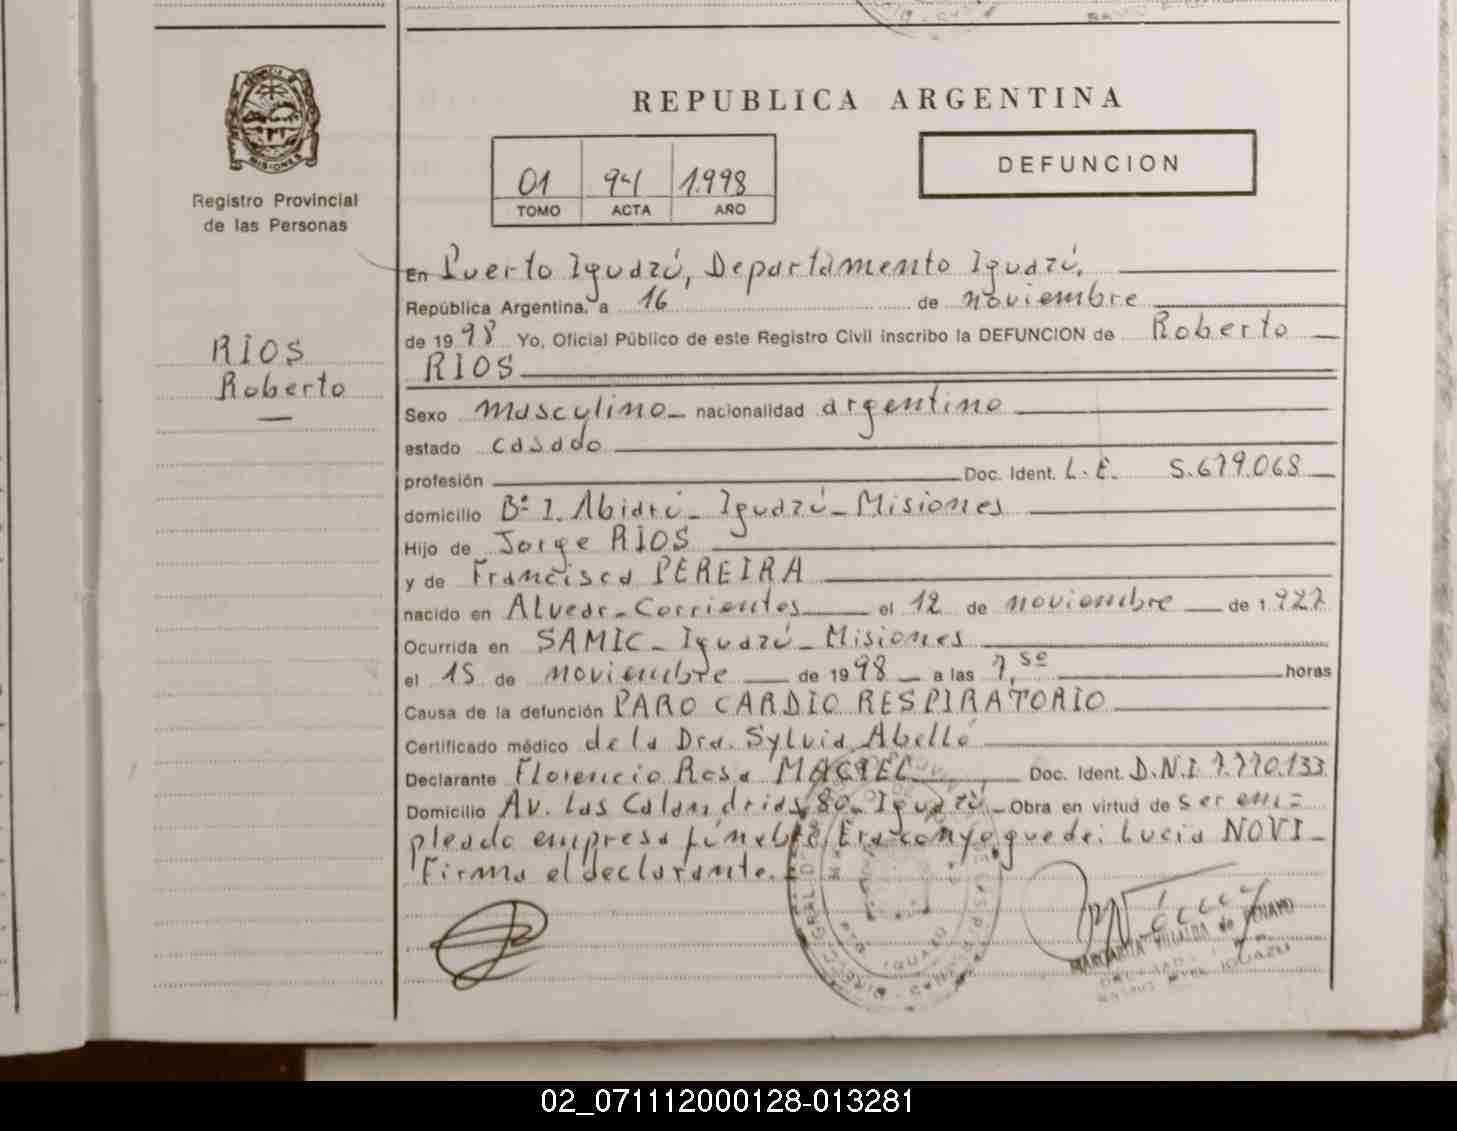 REPUBLICA ARGENTINA
DEFUNCION
01 94 1.998
TOMO ACTA AÑO
MISIONES
Registro Provincial
de las Personas
RIOS
Roberto
En Puerto Iguazú, Departamento Iguazú,
República Argentina, a 16 de noviembre
de 1998 Yo, Oficial Público de este Registro Civil inscribo la DEFUNCION de Roberto
RIOS
Sexo masculino nacionalidad argentino
estado casado
profesión Doc. Ident. L.E. 5.679.068
domicilio Bº 1. Iguazú - Misiones
Hijo de Jorge RIOS
y de Francisca PEREIRA
nacido en Alvear - Corrientes el 12 de noviembre de 1.927
Ocurrida en SAMIC - Iguazú - Misiones
el 15 de noviembre de 1998 a las horas
Causa de la defunción PARO CARDIO RESPIRATORIO
Certificado médico de la Dra. Sylvia Abelló
Declarante Florencio Rosa MACIEL Doc. Ident. D.N.I 7.770.133
Domicilio Av. Las Calandrias 80 - Iguazú - Obra en virtud de Ser em=
pleado empresa fúnebre/Era conyeguede: Lucia NOVI -
Firma el declarante.
MARGARITA VILLALBA de PENAYO
IGUAZU
02_071112000128-013281